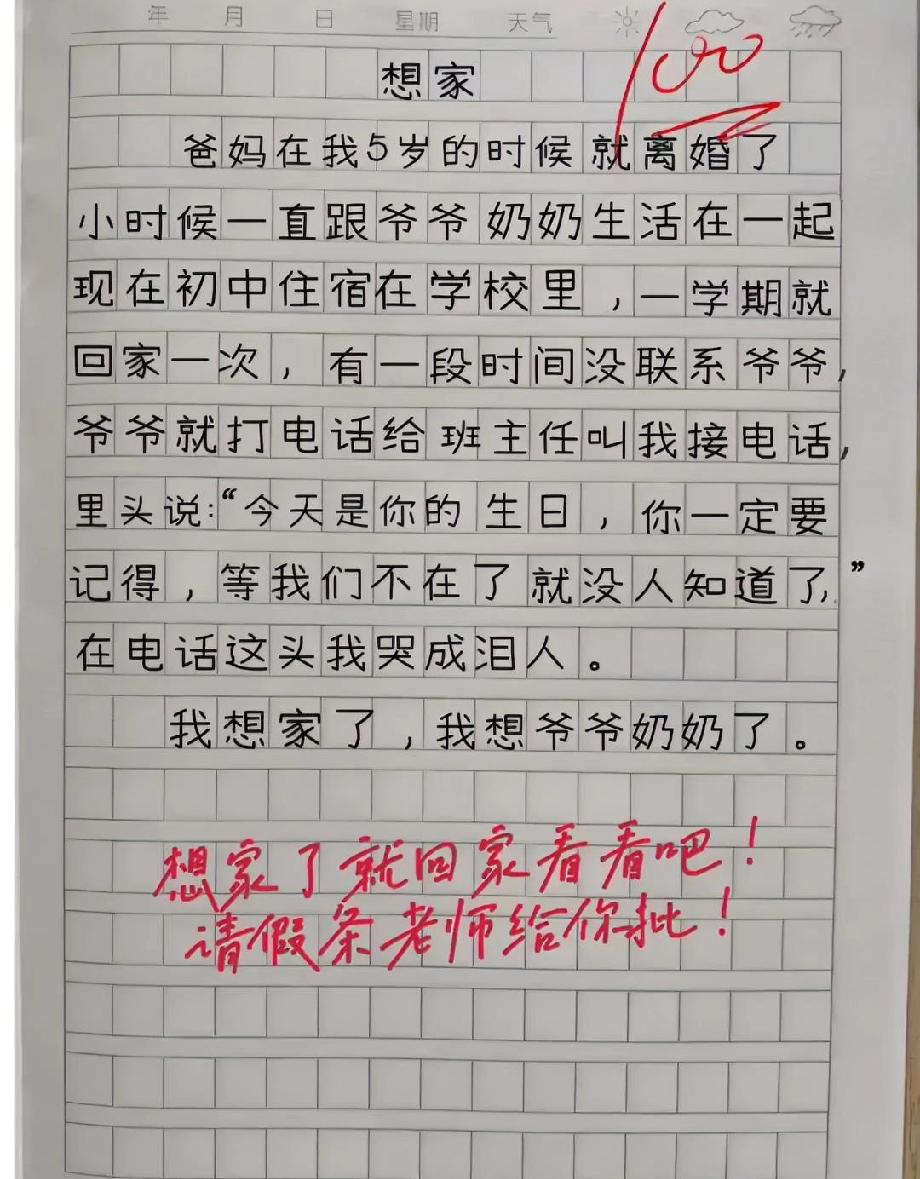 年 月 日 星期 天气
100
想家
爸妈在我5岁的时候就离婚了
小时候一直跟爷爷奶奶生活在一起
现在初中住宿在学校里，一学期就
回家一次，有一段时间没联系爷爷，
爷爷就打电话给班主任叫我接电话，
里头说：“今天是你的生日，你一定要
记得，等我们不在了就没人知道了，”
在电话这头我哭成泪人。
我想家了，我想爷爷奶奶了。
想家了就回家看看吧！
请假条老师给你批！